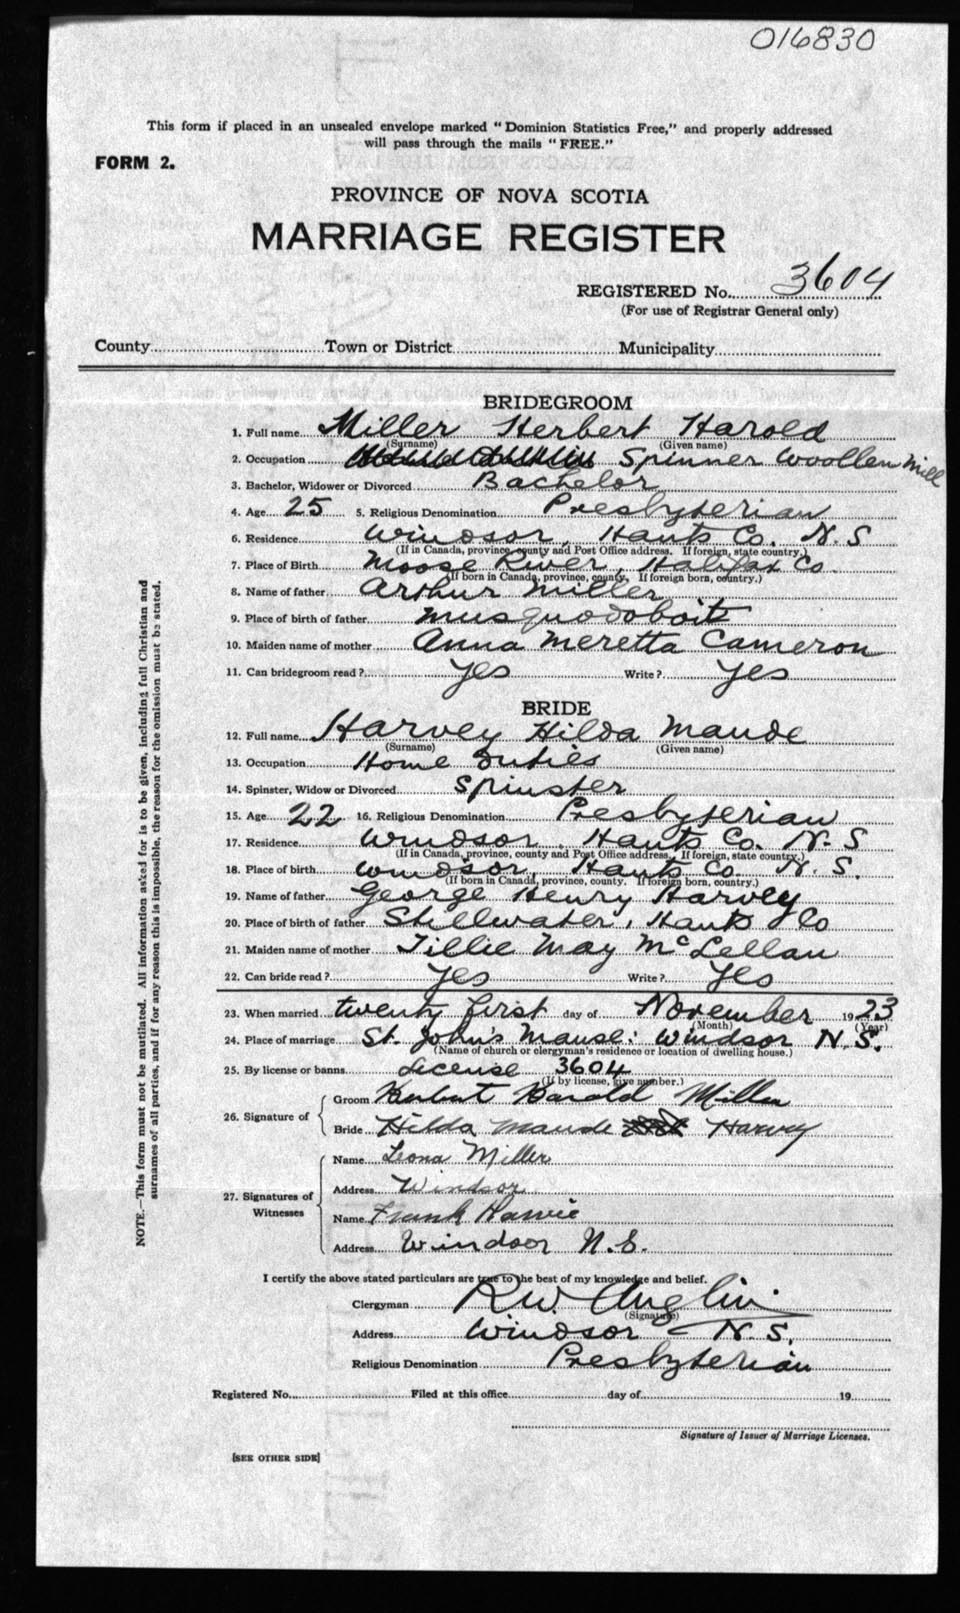 016830
This form if placed in an unsealed envelope marked "Dominion Statistics Free," and properly addressed
will pass through the mails "FREE."
FORM 2.
PROVINCE OF NOVA SCOTIA
MARRIAGE REGISTER
REGISTERED No. 3604
(For use of Registrar General only)
County Town or District Municipality
BRIDEGROOM
1. Full name Miller Herbert Harold
(Surname) (Given name)
2. Occupation Spinner Woollen Mill
3. Bachelor, Widower or Divorced Bachelor
4. Age 25 5. Religious Denomination Presbyterian
6. Residence Windsor, Hants Co. N.S
(If in Canada, province, county and Post Office address. If foreign, state country.)
7. Place of Birth Moose River, Halifax Co.
(If born in Canada, province, county, If foreign born, country.)
8. Name of father Arthur Miller
9. Place of birth of father Musquodoboit
10. Maiden name of mother Anna Meretta Cameron
11. Can bridegroom read? Yes Write? Yes
BRIDE
12. Full name Harvey Hilda Maude
(Surname) (Given name)
13. Occupation Home Duties
14. Spinster, Widow or Divorced Spinster
15. Age 22 16. Religious Denomination Presbyterian
17. Residence Windsor, Hants Co. N.S
(If in Canada, province, county and Post Office address. If foreign, state country.)
18. Place of birth Windsor, Hants Co. N.S.
(If born in Canada, province, county. If foreign born, country.)
19. Name of father George Henry Harvey
20. Place of birth of father Stillwater, Hants Co
21. Maiden name of mother Tillie May McLellan
22. Can bride read? Yes Write? Yes
23. When married twenty first day of November 1923
(Month) (Year)
24. Place of marriage St. John's Manse: Windsor N.S.
(Name of church or clergyman's residence or location of dwelling house.)
25. By license or banns License 3604
(If by license, give number.)
26. Signature of
Groom Herbert Harold Miller
Bride Hilda Maude Harvey
27. Signatures of Witnesses
Name Leona Miller
Address Windsor
Name Frank Harvie
Address Windsor N.S.
I certify the above stated particulars are true to the best of my knowledge and belief.
Clergyman R.W. Anglin
(Signature)
Address Windsor N.S.
Religious Denomination Presbyterian
Registered No. Filed at this office day of 19
Signature of Issuer of Marriage Licenses.
[SEE OTHER SIDE]
NOTE.—This form must not be mutilated. All information asked for is to be given, including full Christian and
surnames of all parties, and if for any reason this is impossible, the reason for the omission must be stated.